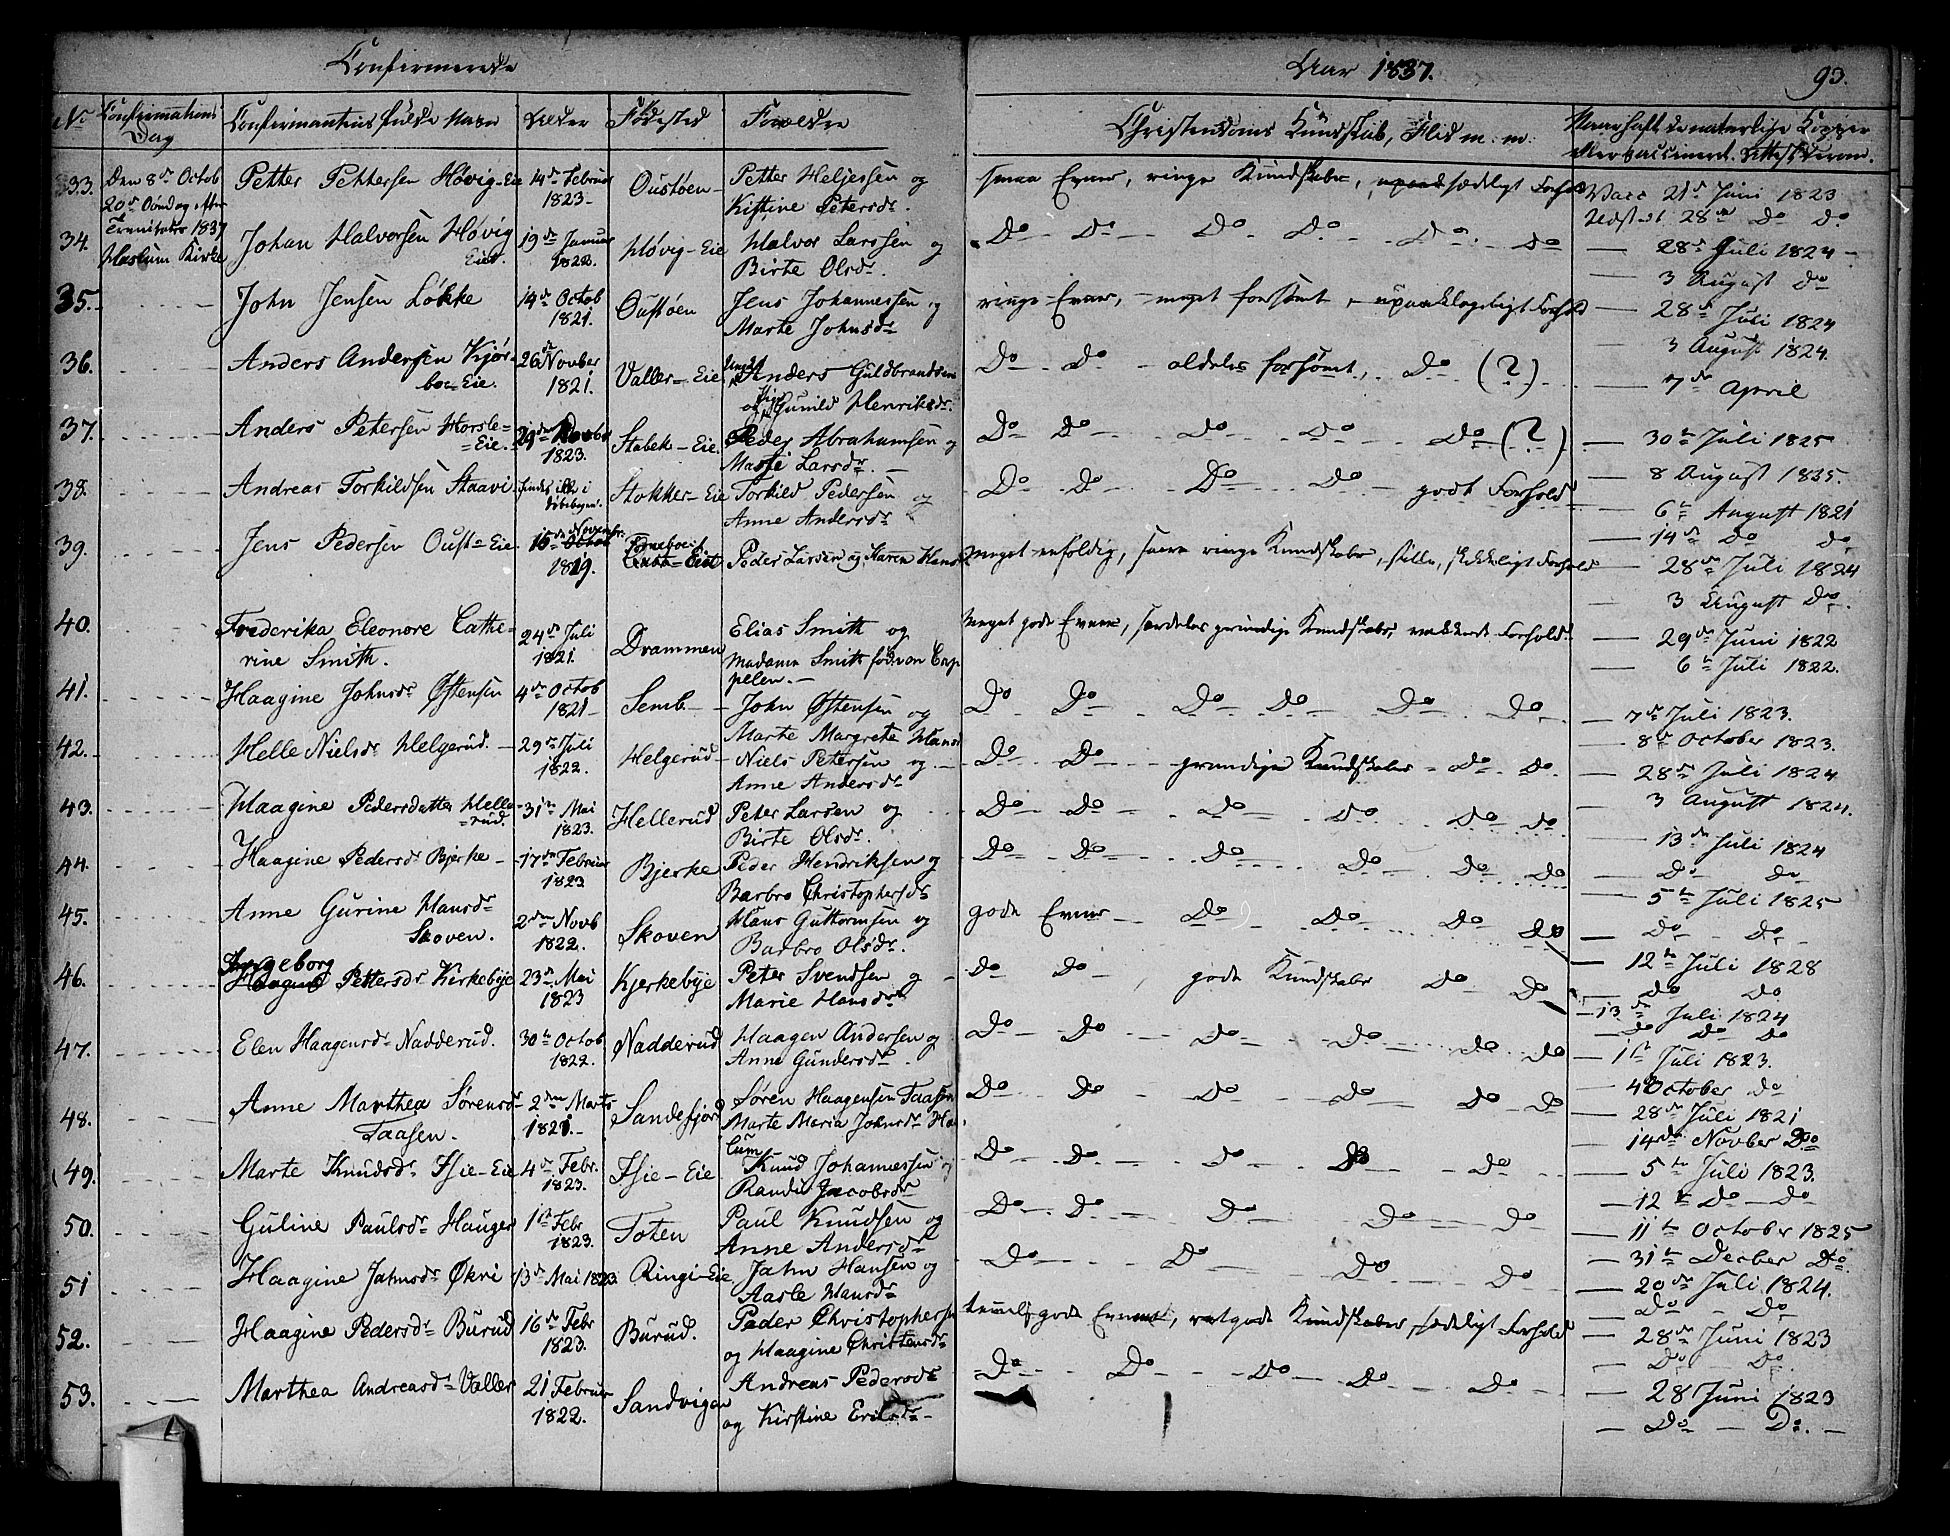 Confirmerede
Aar 1837.
93.
No Confirmations Dag
Confirmantens fulde Navn
Alder
Fødested
Forældre
Christendoms Kundskab, Flid m. m.
33. Den 8de Octob Petter Pettersen Høvig-Eie 14de Februar 1823 Oustøen Petter Heljessen og Kistine Petersdr. smaa Evner, ringe Kundskaber, sædeligt Forhold Vacc 21de Juni 1823
20de Søndag efter Trinitatis 1837 Haslum Kirke
Udstædt 28de Do Do
34. Johan Halvorsen Høvig Eiet. 19de Januar 1822. Høvig-Eie Halvor Larssen og Birte Olsdr. Do Do Do Do Do Do — 28de Juli 1824
— 3 August Do
35. John Jensen Løkke 14de Octob 1821. Oustøen Jens Johannessen og Marte Johnsdr ringe Evner, meget forsömt, upaaklageligt Forhold — 28de Juli 1824
— 3 August 1824.
36. Anders Andersen Kjørboe-Eie. 26de Novber 1821. Valler-Eie Anders Guldbrandsen og Gunild Henriksdr. Do Do aldeles forsömt, Do (?) — 7de April
37. Anders Petersen Horsle-Eie. 29de Novbr 1823. Stabek-Eie. Peder Abrahamsen og Larsdr. Do Do Do Do Do (?) — 30te Juli 1825
— 8 August 1835.
38. Andreas Torkildsen Staavi Stokker-Eie Torkild Pedersen og Anne Andersdr Do Do Do Do godt Forhold — 6te August 1821
— 14de Do Do
39. Jens Pedersen Oust-Eie 15de Novembr. 1819. Peder Larsen og Karen Hansd meget enfoldig, ringe Kundskaber, stille, skikkeligt Forhold — 28de Juli 1824
— 3 August Do.
40. Frederika Eleonore Catherine Smith. 24de Juli 1821. Drammen Elias Smith og Madame Smith fød. von Cappelen. Meget gode Evner, særdeles grundige Kundskaber, Forhold. — 29de Juni 1822
— 6te Juli 1822.
41. Haagine Johnsdr Østensen 4de Octob 1821 Semb John Østensen og Marte Margrete Hansd Do Do Do Do Do Do — 7de Juli 1823.
— 8de October 1823.
42. Helle Nielsdr Helgerud. 29de Juli 1822. Helgerud Niels Petersen og Anne Andersdr Do Do grundige Kundskaber Do Do. — 28de Juli 1824
— 3 August 1824.
43. Haagine Pedersdatter Hellerud. 31te Mai 1823. Hellerud Peter Larsen og Birte Olsdr. Do Do Do Do Do Do — 13de Juli 1824
— Do Do
44. Haagine Pedersdr Bjerke 17te Februar 1823 Bjerke Peder Hendriksen og Barbro Christophersdr Do Do Do Do Do Do — 5te Juli 1825
— Do Do
45. Anne Gurine Hansdr Skoven. 2den Novb 1822. Skoven Hans Guttormsen og Barbro Olsdr. gode Evner Do Do Do Do — 12te Juli 1828
— Do Do
46. Ingeborg Pettersdr Kirkebye 23de Mai 1823 Kjerkebye Peter Svendsen og Marie Hansdr Do Do gode Kundskaber Do Do — 13de Juli 1824
— Do Do Do
47. Elen Haagensdr Nadderud. 30te Octob 1822. Nadderud Haagen Andersen og Anne Gundersdr. Do Do Do Do Do Do — 1ste Juli 1823.
— 4 October Do
48. Anne Marthea Sørensdr Taasen. 2den Marts 1821. Sandefjord Søren Haagensen Taasen Marte Maria Johnsdr Do Do Do Do Do Do — 28de Juli 1821
— 14de Novber Do
49. Marte Knudsdr Isie-Eie 4de Febr. 1823. Isie-Eie Knud Johannessen og Randi Jacobsdr Do Do Do Do Do — 5te Juli 1823.
— 12te Do Do
50. Guline Paulsdr Hauger 1ste Febr 1823. Toten Paul Knudsen og Anne Andersdr Do Do Do Do Do — 11te October 1825
— 31te Decber Do
51 Haagine Jahnsdr Økri 13de Mai 1823 Ringi-Eie Jahn Hansen og Aasle Hansdr Do Do Do Do — 20de Juli 1824.
— Do Do
52. Haagine Pedersdr Burud 16de Febr 1823. Burud. Peder Christophersen og Haagine Christensdr gode Evner, ret gode Kundskaber, sædeligt Forhold — 28de Juni 1823
— Do Do
53. Marthea Andreasdr Valler 21 Februar 1822. Sandvigen Andreas Pedersen og Kirstine Ericsdr Do Do Do Do Do — 28 Juni 1823
— Do — Do. —